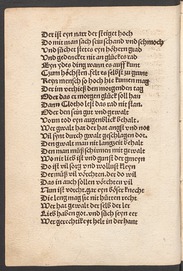 Der ist eyn narr der steiget hoch
Do mit man sech sein schand und schmoch
Und suchet stetes eyn höhern grad
Und gedencket nit an glückes rad
Eyn yedes ding wann es auff kumt
Zum höchsten felt es selbst zu grunt
Keyn mensch so hoch hie kumen mag
Der im verheiß den morgenden tag
Oder das er morgen glück sol han
Dann Clotho leßt das rad nit stan
Oder den sein gut und gewalt
Vom tod eyn augenblick behalt
Wer gewalt hat der hat angst und not
Vil synt durch gewalt geschlagen dot
Den gewalt man nit langzeit behalt
Den man muß schirmen mit gewalt
Wo nit lieb ist und gunst der gmeyn
Do ist vil sorg und wollust kleyn
Der muß vil vörchten der do wil
Das in auch sollen vörchten vil
Nun ist vorcht gar eyn böser knecht
Die leng mag sie nit hütten recht
Wer hat gewalt der selb der ler
Lieb haben got und such seyn eer
Wer gerechtikeyt helt in der hant